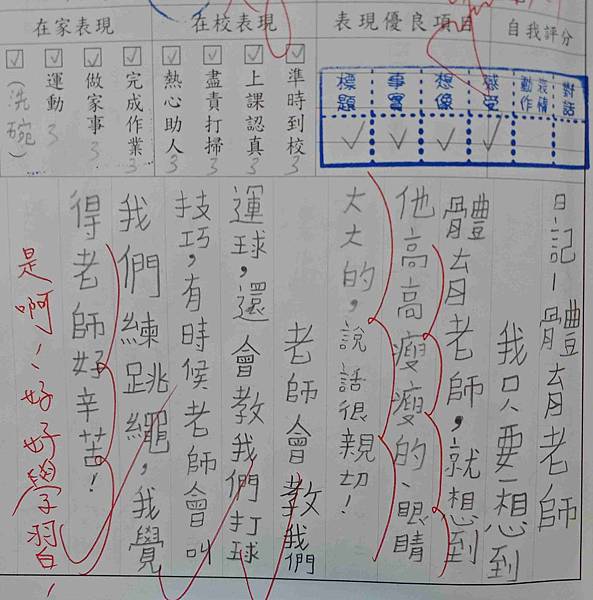 自我評分
表現優良項目
在校表現
在家表現
準時到校 3
上課認真 3
盡責打掃 3
熱心助人 3
完成作業 3
做家事 3
運動 3
(洗碗)
對話
表情動作
感受
想像
事實
標題
日記—體育老師
我只要一想到
體育老師,就想到
他高高瘦瘦的、眼睛
大大的,說話很親切!
老師會教我們
運球,還會教我們打球
技巧,有時候老師會叫
我們練跳繩,我覺
得老師好辛苦!
是啊!好好學習!